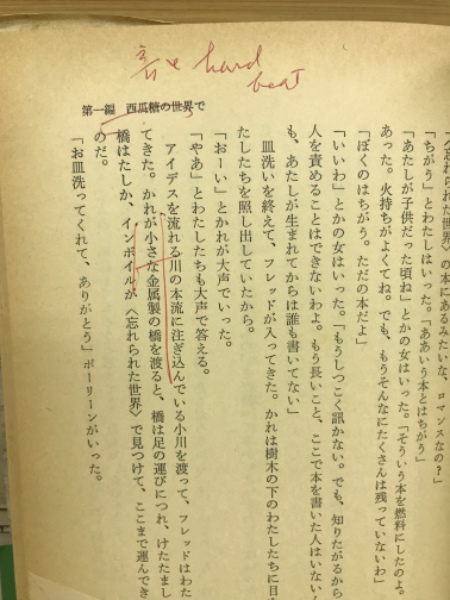 音と hard beat
第一編　西瓜糖の世界で
〈忘れられた世界〉の本にあるみたいな、ロマンスなの？」
「ちがう」とわたしはいった。「ああいう本とはちがう」
「あたしが子供だった頃ね」とかの女はいった。「そういう本を燃料にしたのよ。
あった。火持ちがよくてね。でも、もうそんなにたくさんは残っていないわ」
「ぼくのはちがう。ただの本だよ」
「いいわ」とかの女はいった。「もうしつこく訊かない。でも、知りたがるから
人を責めることはできないわよ。もう長いこと、ここで本を書いた人はいない
も、あたしが生まれてからは誰も書いてない」
皿洗いを終えて、フレッドが入ってきた。かれは樹木の下のわたしたちに目
たしたちを照し出していたから。
「おーい」とかれが大声でいった。
「やあ」とわたしたちも大声で答える。
アイデスを流れる川の本流に注ぎ込んでいる小川を渡って、フレッドはわた
てきた。かれが小さな金属製の橋を渡ると、橋は足の運びにつれ、けたたまし
橋はたしか、インボイルが〈忘れられた世界〉で見つけて、ここまで運んでき
のだ。
「お皿洗ってくれて、ありがとう」ポーリーンがいった。